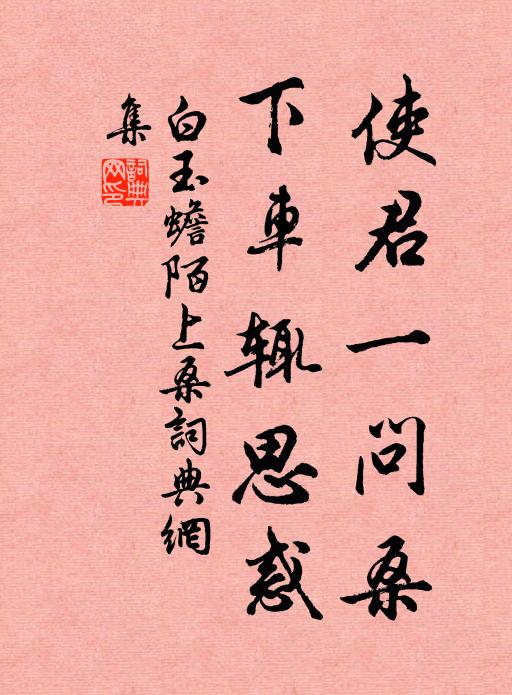 使君一问桑
下車辄思惑
白玉蟾陌上桑詞典網
集
詞典网印